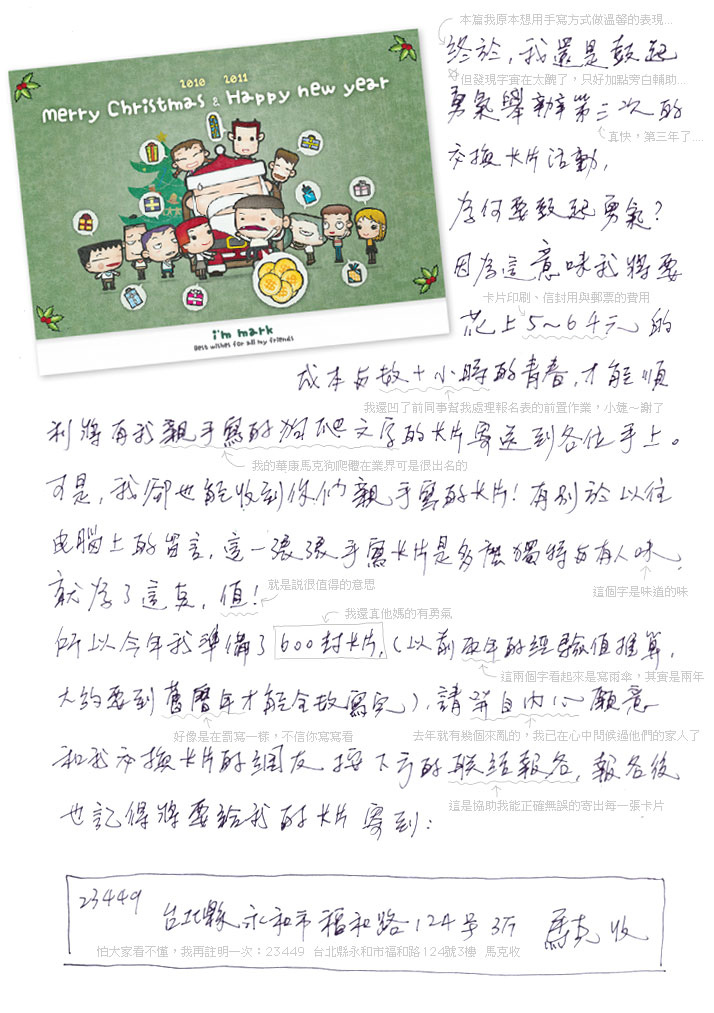 本篇我原本想用手寫方式做溫馨的表現...
終於，我還是鼓起
但發現字實在太醜了，只好加點旁白輔助....
勇氣舉辦第三次的
真快，第三年了....
交換卡片活動，
為何要鼓起勇氣？
因為這意味我將要
卡片印刷、信封用與郵票的費用
花上5~6千元的
成本与数十小時的青春，才能順
我還凹了前同事幫我處理報名表的前置作業，小蓮～謝了
利將有我親手寫的狗爬文字的卡片寄送到各位手上。
我的華康馬克狗爬體在業界可是很出名的
可是，我卻也能收到你們親手寫的卡片！有別於以往
電腦上的留言，這一張張手寫卡片是多麼獨特与有人味，
這個字是味道的味
就為了這点，值！
就是說很值得的意思
我還真他媽的有勇氣
所以今年我準備了600封卡片，（以前兩年的經驗值推算，
這兩個字看起來是寫雨傘，其實是兩年
大約要到舊曆年才能全数寫完），請發自內心願意
好像是在罰寫一樣，不信你寫寫看
去年就有幾個來亂的，我已在心中問候過他們的家人了
和我交換卡片的網友按下方的联結報名，報名後
這是協助我能正確無誤的寄出每一張卡片
也記得將要給我的卡片寄到：
23449
台北縣永和市福和路124号3F 馬克 收
怕大家看不懂，我再註明一次：23449 台北縣永和市福和路124號3樓 馬克收
2010 2011
merry Christmas & Happy new year
i'm mark
Best wishes for all my friends